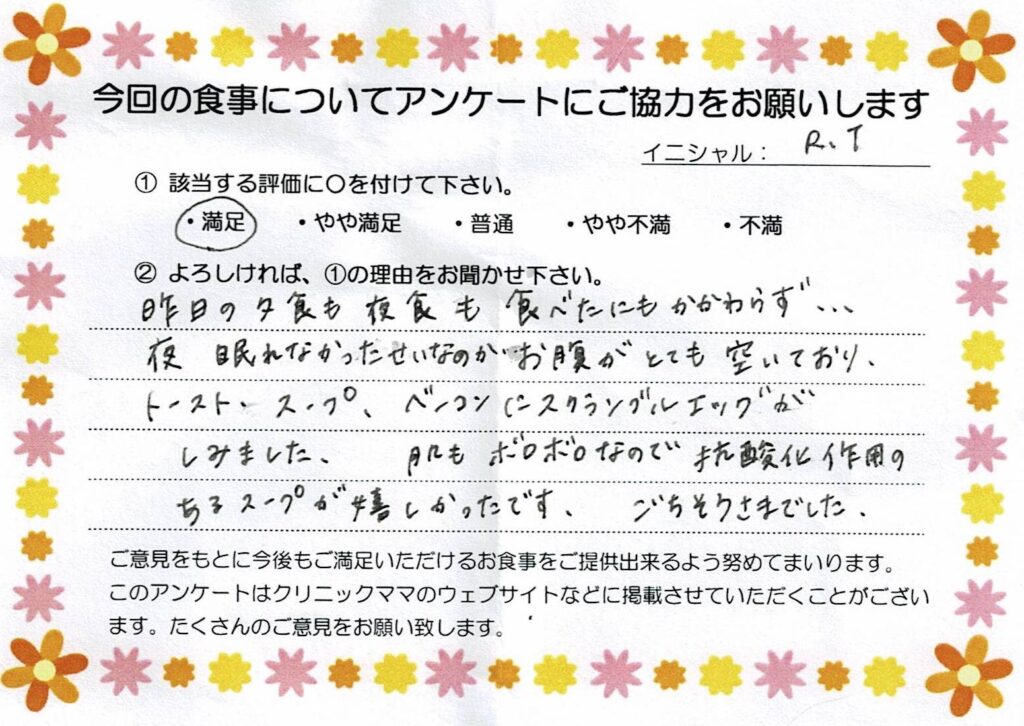 今回の食事についてアンケートにご協力をお願いします
イニシャル： R.T
① 該当する評価に〇を付けて下さい。
・満足 ・やや満足 ・普通 ・やや不満 ・不満
② よろしければ、①の理由をお聞かせ下さい。
昨日の夕食も夜食も食べたにもかかわらず...
夜眠れなかったせいなのかお腹がとても空いており、
トースト、スープ、ベーコンにスクランブルエッグが
しみました。 肌もボロボロなので抗酸化作用の
あるスープが嬉しかったです。 ごちそうさまでした。
ご意見をもとに今後もご満足いただけるお食事をご提供出来るよう努めてまいります。
このアンケートはクリニックママのウェブサイトなどに掲載させていただくことがござい
ます。たくさんのご意見をお願い致します。